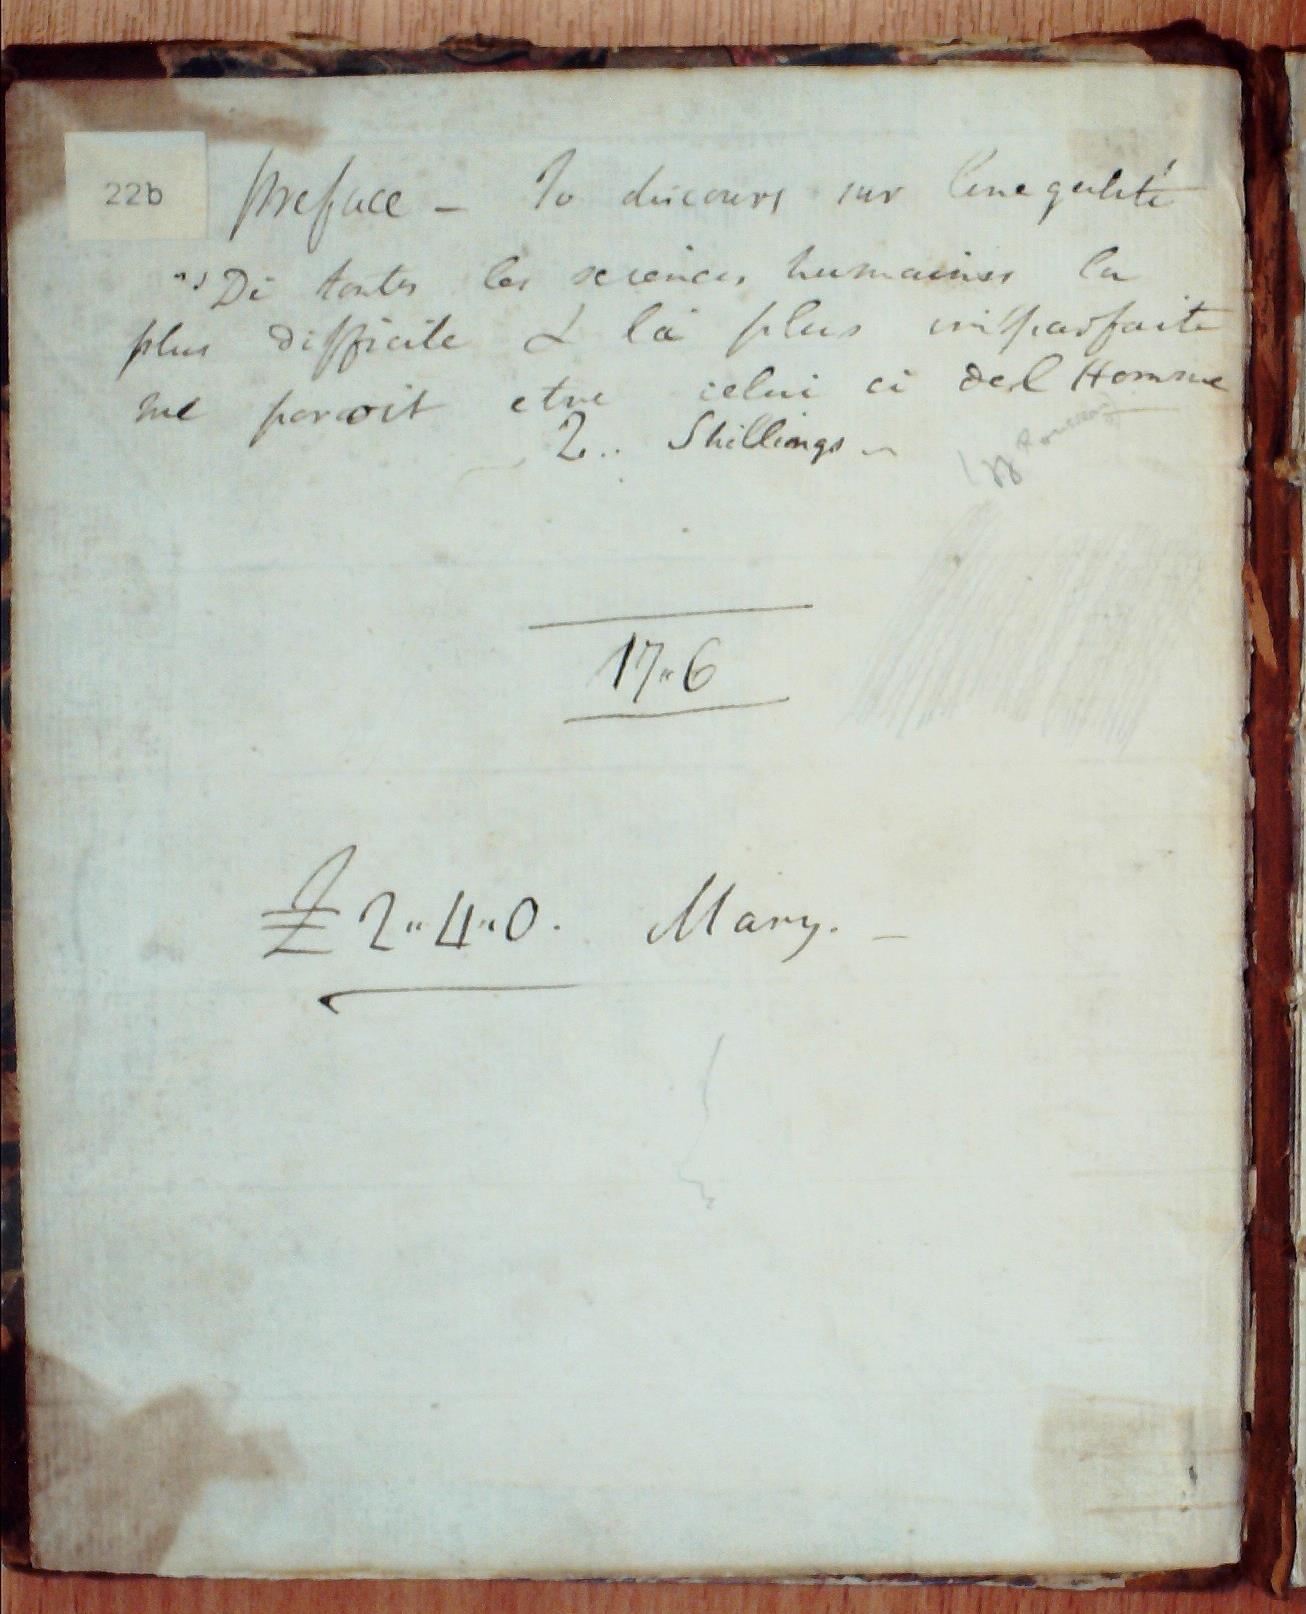 22b
Preface - To discours sur l'inegalité
"De toutes les sciences humaines la
plus difficile & la plus imparfaite
me paroit etre celui ci del Homme
2.. Shillings -
by Rousseau
17"6
£2"4"0. Mary. -